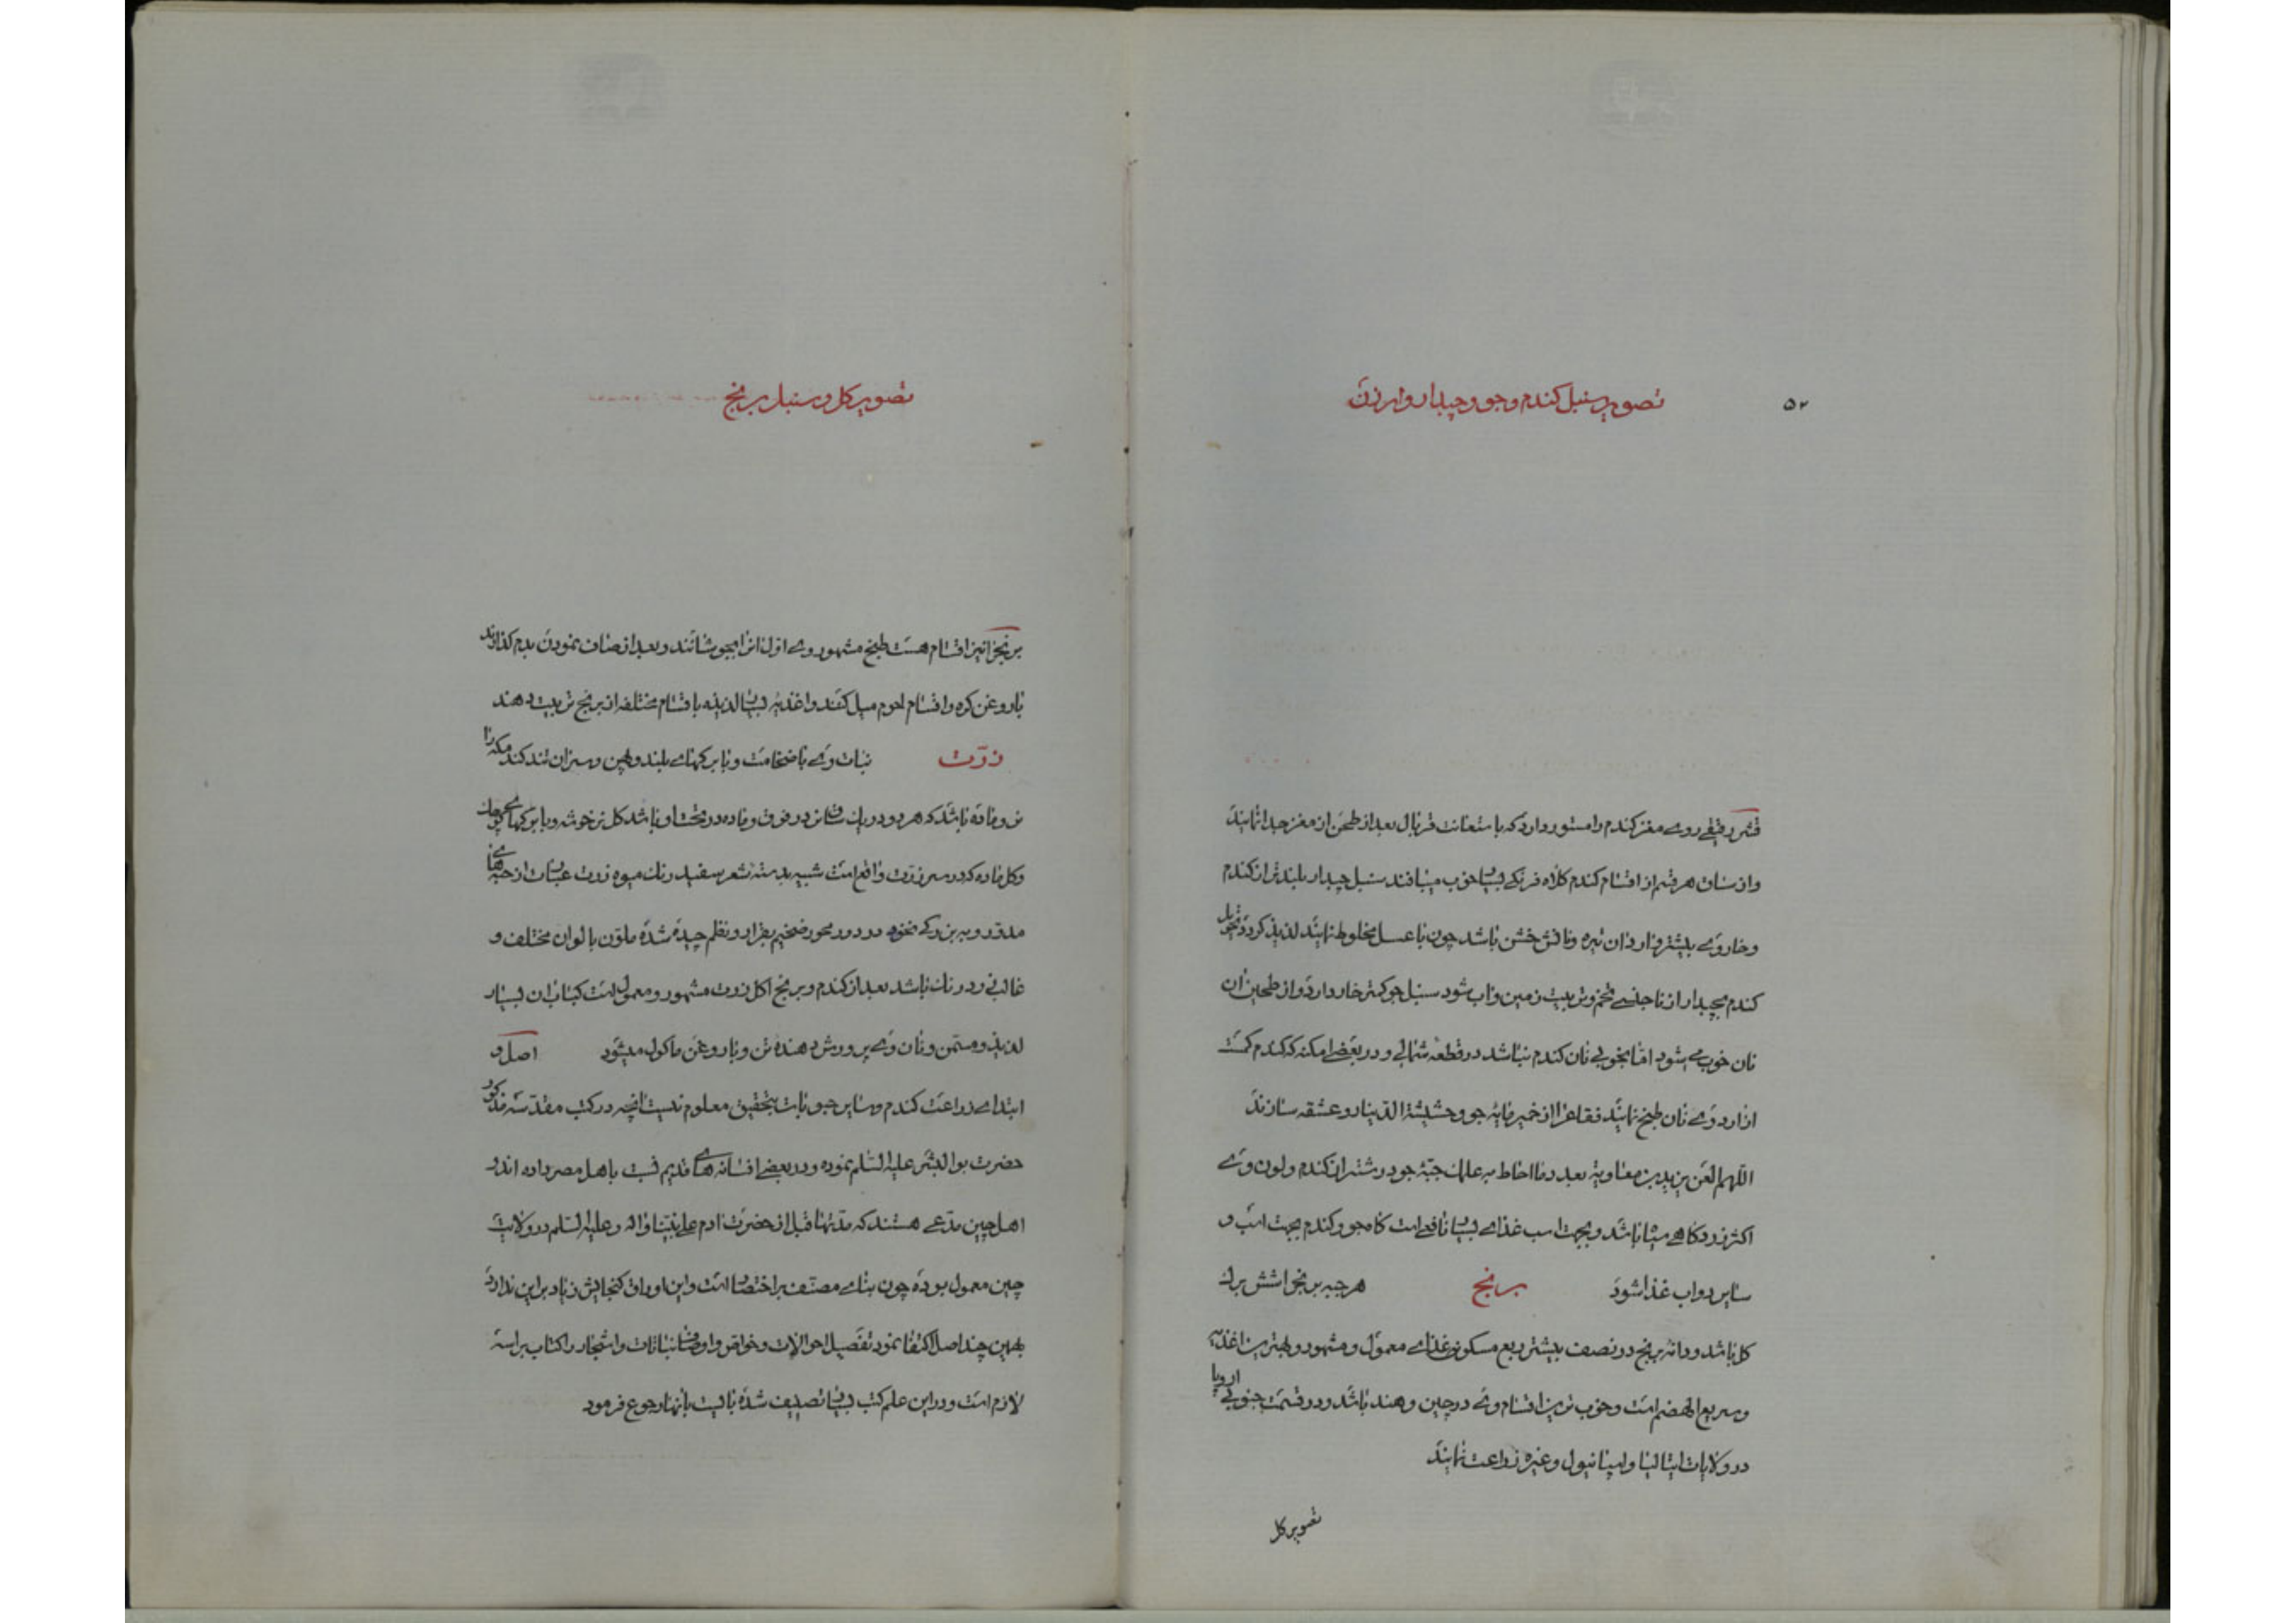 ۵۲
تصویر سنبل کندم و جو و چبدار و ارزن
قشر رقیقی روی مغز کندم را مستور دارد که باستعانت قربال بعد از طحن از مغز جدا نمایند
و از ساق هر قسم از اقسام کندم کلاه فرنکی بسیار خوب میبافند سنبل چبدار بلندتر از کندم
و خار وی بیشتر و آرد آن تیره و نانش خشن باشد چون با عسل مخلوط نمایند لذیذ کردد تحویل
کندم بچبدار از ناجنسی تخم و تربیت زمین و آب شود سنبل جو کمتر خار دارد و از طحین آن
نان خوب می شود اما بخوبی نان کندم نباشد در قطعه شمالی و در بعضی امکنه که کندم کمست
از آرد وی نان طبخ نمایند فقاع را از خمیر مایه جو و حشیشة الدینار و عشقه سازند
اللهم العن یزید بن معاویة بعدد ما احاط به علمک حبّه جو درشتر از کندم و لون وی
اکثر زرد کاهی میباشد و بجهت اسب غذای بسیار نافعی است کاه جو و کندم بجهت اسب و
سایر دواب غذا شود برنج هر حبه برنج را شش برک
کل باشد و دانه برنج در نصف بیشتر ربع مسکون غذای معمول و مشهور و بهترین اغذیه
و سریع الهضم است و خوب ترین اقسام وی در چین و هند باشد و در قسمت جنوبی اروپا
در ولایات ایتالیا و اسپانیول و غیره زراعت نمایند
تصویر کل
تصویر کل و سنبل برنج
برنج را نیز اقسام هست طبخ مشهور وی اول انرا بجوشانند و بعد از صاف نمودن بدم کذارند
با روغن کره و اقسام لحوم میل کنند و اغذیه بسیار لذیذه باقسام مختلفه از برنج ترتیب دهند
ذرّت نبات وی با ضخامت و با برکهای بلند و پهن و سبزان تند کند مکه را
نر و ماده باشد که هر دو در یک ساق نر در فوق و ماده در تحت او باشد کل نر خوشه و با برکهای کوچک
و کل ماده که در سر ذرت واقع است شبیه بدسته شعر سفید رنک میوه ذرت عبارت از حبه های
مدوّر و ببزرکی نخود در دور محور ضخیم بقرار و نظم چیده شده ملوّن بالوان مختلف و
غالبی زرد رنک باشد بعد از کندم و برنج اکل ذرت مشهور و معمول است کباب آن بسیار
لذیذ و مسمّن و نان وی پرورش دهنده تن و با روغن ماکول میشود اصل و
ابتدای زراعت کندم و سایر حبوبات بتحقیق معلوم نیست آنچه در کتب مقدّسه مذکور
حضرت بوالبشر علیه السّلام نموده و در بعضی افسانه های قدیم نسبت باهل مصر داده اند
اهل چین مدّعی هستند که مدّتها قبل از حضرت آدم علی نبیّنا و آله و علیه السّلام در ولایت
چین معمول بوده چون بنای مصنّف بر اختصار است و این اوراق کنجایش زیاد بر این ندارد
بهمین چند اصل اکتفا نمود تفصیل احوالات و خواصّ و اوصاف نباتات و اشجار را کتاب براسه
لازم است و در این علم کتب بسیار تصنیف شده بایست بآنها رجوع فرمود